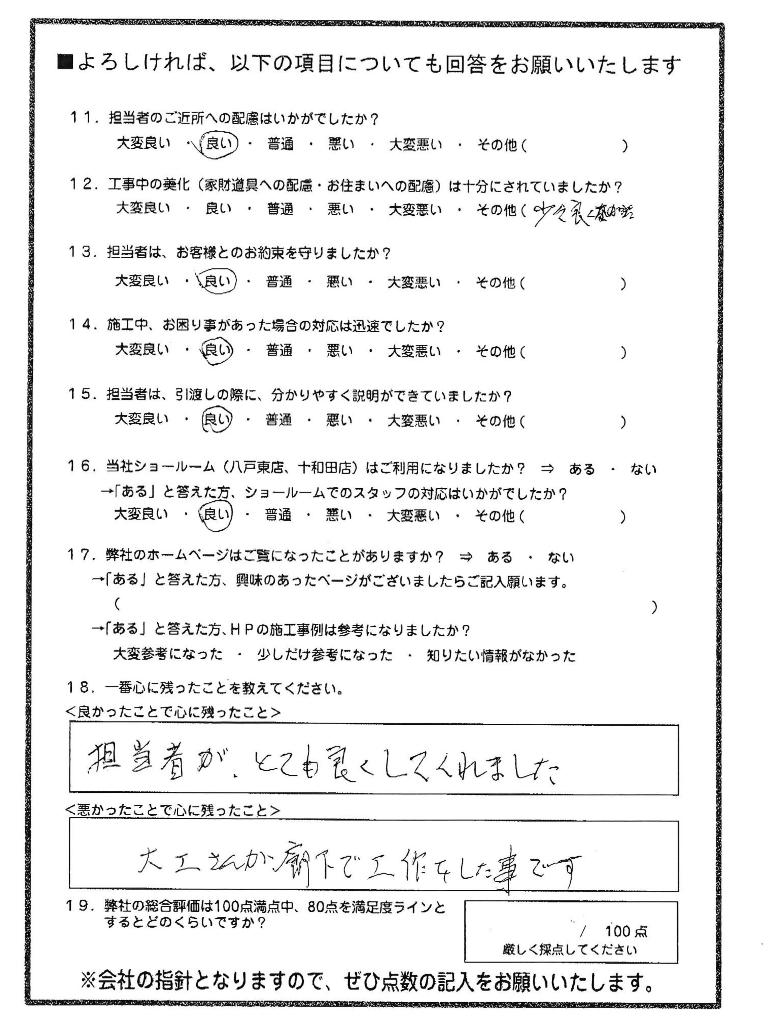 ■よろしければ、以下の項目についても回答をお願いいたします
11．担当者のご近所への配慮はいかがでしたか？
大変良い ・ 良い ・ 普通 ・ 悪い ・ 大変悪い ・ その他（ ）
12．工事中の美化（家財道具への配慮・お住まいへの配慮）は十分にされていましたか？
大変良い ・ 良い ・ 普通 ・ 悪い ・ 大変悪い ・ その他（ 少々良く
13．担当者は、お客様とのお約束を守りましたか？
大変良い ・ 良い ・ 普通 ・ 悪い ・ 大変悪い ・ その他（ ）
14．施工中、お困り事があった場合の対応は迅速でしたか？
大変良い ・ 良い ・ 普通 ・ 悪い ・ 大変悪い ・ その他（ ）
15．担当者は、引渡しの際に、分かりやすく説明ができていましたか？
大変良い ・ 良い ・ 普通 ・ 悪い ・ 大変悪い ・ その他（ ）
16．当社ショールーム（八戸東店、十和田店）はご利用になりましたか？ ⇒ ある ・ ない
→「ある」と答えた方、ショールームでのスタッフの対応はいかがでしたか？
大変良い ・ 良い ・ 普通 ・ 悪い ・ 大変悪い ・ その他（ ）
17．弊社のホームページはご覧になったことがありますか？ ⇒ ある ・ ない
→「ある」と答えた方、興味のあったページがございましたらご記入願います。
（ ）
→「ある」と答えた方、ＨＰの施工事例は参考になりましたか？
大変参考になった ・ 少しだけ参考になった ・ 知りたい情報がなかった
18．一番心に残ったことを教えてください。
＜良かったことで心に残ったこと＞
担当者が、とても良くしてくれました
＜悪かったことで心に残ったこと＞
大工さんが廊下で工作をした事です
19．弊社の総合評価は100点満点中、80点を満足度ラインと
するとどのくらいですか？
/ 100点
厳しく採点してください
※会社の指針となりますので、ぜひ点数の記入をお願いいたします。